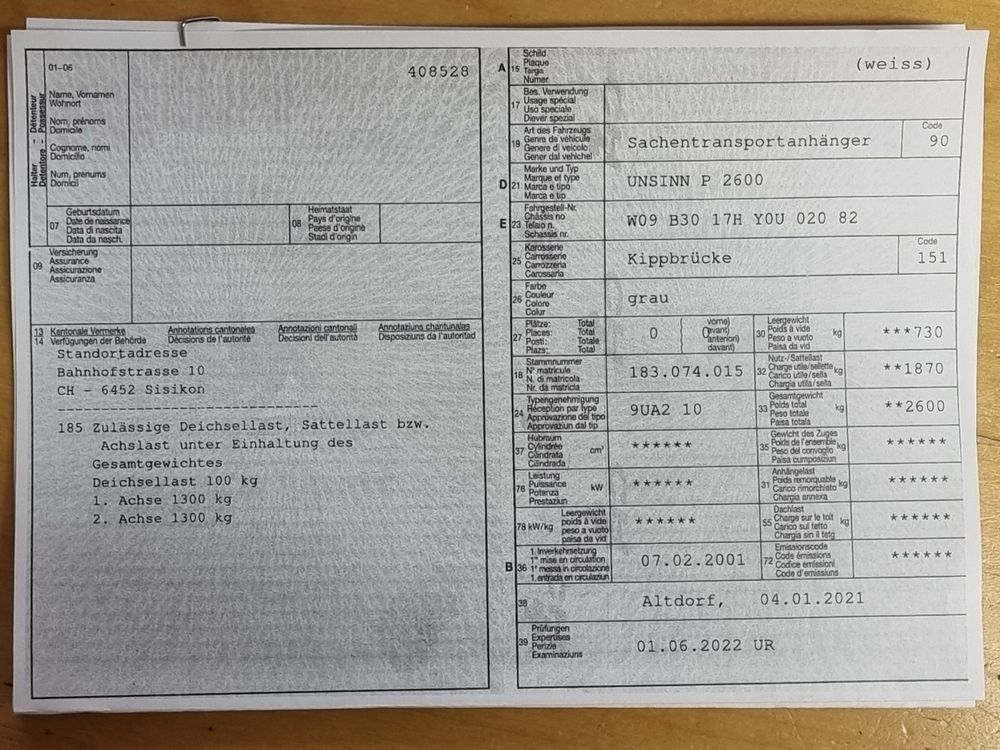 01-06
408528
Halter - Détenteur
Detentore - Possessur
Name, Vornamen
Wohnort
Nom, prénoms
Domicile
Cognome, nomi
Domicilio
Num, prenums
Domicil
07
Geburtsdatum
Date de naissance
Data di nascita
Data da nasch.
08
Heimatstaat
Pays d'origine
Paese d'origine
Stadi d'origin
09
Versicherung
Assurance
Assicurazione
Assicuranza
13
14
Kantonale Vermerke
Verfügungen der Behörde
Annotations cantonales
Décisions de l'autorité
Annotazioni cantonali
Decisioni dell'autorità
Annotaziuns chantunalas
Disposiziuns da l'autoritad
Standortadresse
Bahnhofstrasse 10
CH - 6452 Sisikon
185 Zulässige Deichsellast, Sattellast bzw.
Achslast unter Einhaltung des
Gesamtgewichtes
Deichsellast 100 kg
1. Achse 1300 kg
2. Achse 1300 kg
A 15
Schild
Plaque
Targa
Numer
(weiss)
17
Bes. Verwendung
Usage spécial
Uso speciale
Diever spezial
19
Art des Fahrzeugs
Genre de véhicule
Genere di veicolo
Gener dal vehichel
Sachentransportanhänger
Code
90
D 21
Marke und Typ
Marque et type
Marca e tipo
Marca e tip
UNSINN P 2600
E 23
Fahrgestell-Nr.
Châssis no
Telaio n.
Schassis nr.
W09 B30 17H Y0U 020 82
25
Karosserie
Carrosserie
Carrozzeria
Carossaria
Kippbrücke
Code
151
26
Farbe
Couleur
Colore
Colur
grau
27
Plätze: Total
Places: Total
Posti: Totale
Plazs: Total
0
vorne)
(avant)
(anteriori)
davant)
30
Leergewicht
Poids à vide
Peso a vuoto
Paisa da vid
kg
***730
18
Stammnummer
N° matricule
N. di matricola
Nr. da matricla
183.074.015
32
Nutz-/Sattellast
Charge utile/sellette
Carico utile/sella
Chargia utila/sella
kg
**1870
24
Typengenehmigung
Réception par type
Approvazione del tipo
Approvaziun dal tip
9UA2 10
33
Gesamtgewicht
Poids total
Peso totale
Paisa totala
kg
**2600
37
Hubraum
Cylindrée
Cilindrata
Cilindrada
cm³
******
35
Gewicht des Zuges
Poids de l'ensemble
Peso del convoglio
Paisa cumposiziun
kg
******
76
Leistung
Puissance
Potenza
Prestaziun
kW
******
31
Anhängelast
Poids remorquable
Carico rimorchiato
Chargia annexa
kg
******
78 kW/kg
Leergewicht
poids à vide
peso a vuoto
paisa da vid
******
55
Dachlast
Charge sur le toit
Carico sul tetto
Chargia sin il tetg
kg
******
B 36
1. Inverkehrsetzung
1re mise en circulation
1a messa in circolazione
1. entrada en circulaziun
07.02.2001
72
Emissionscode
Code émissions
Codice emissioni
Code d'emissiuns
******
38
Altdorf, 04.01.2021
39
Prüfungen
Expertises
Perizie
Examinaziuns
01.06.2022 UR